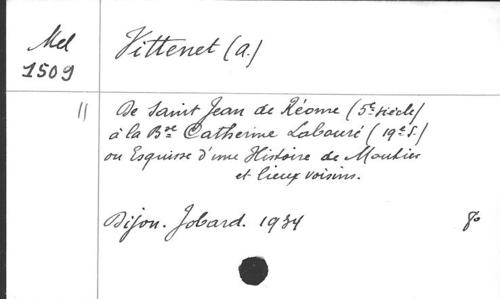 Mel
1509
Vittenet (A.)
11
De Saint Jean de Réome (5e siècle)
à la Bse Catherine Labouré (19e s.)
ou Esquisse d'une Histoire de Moutier
et lieux voisins.
Dijon. Jobard. 1934
8o